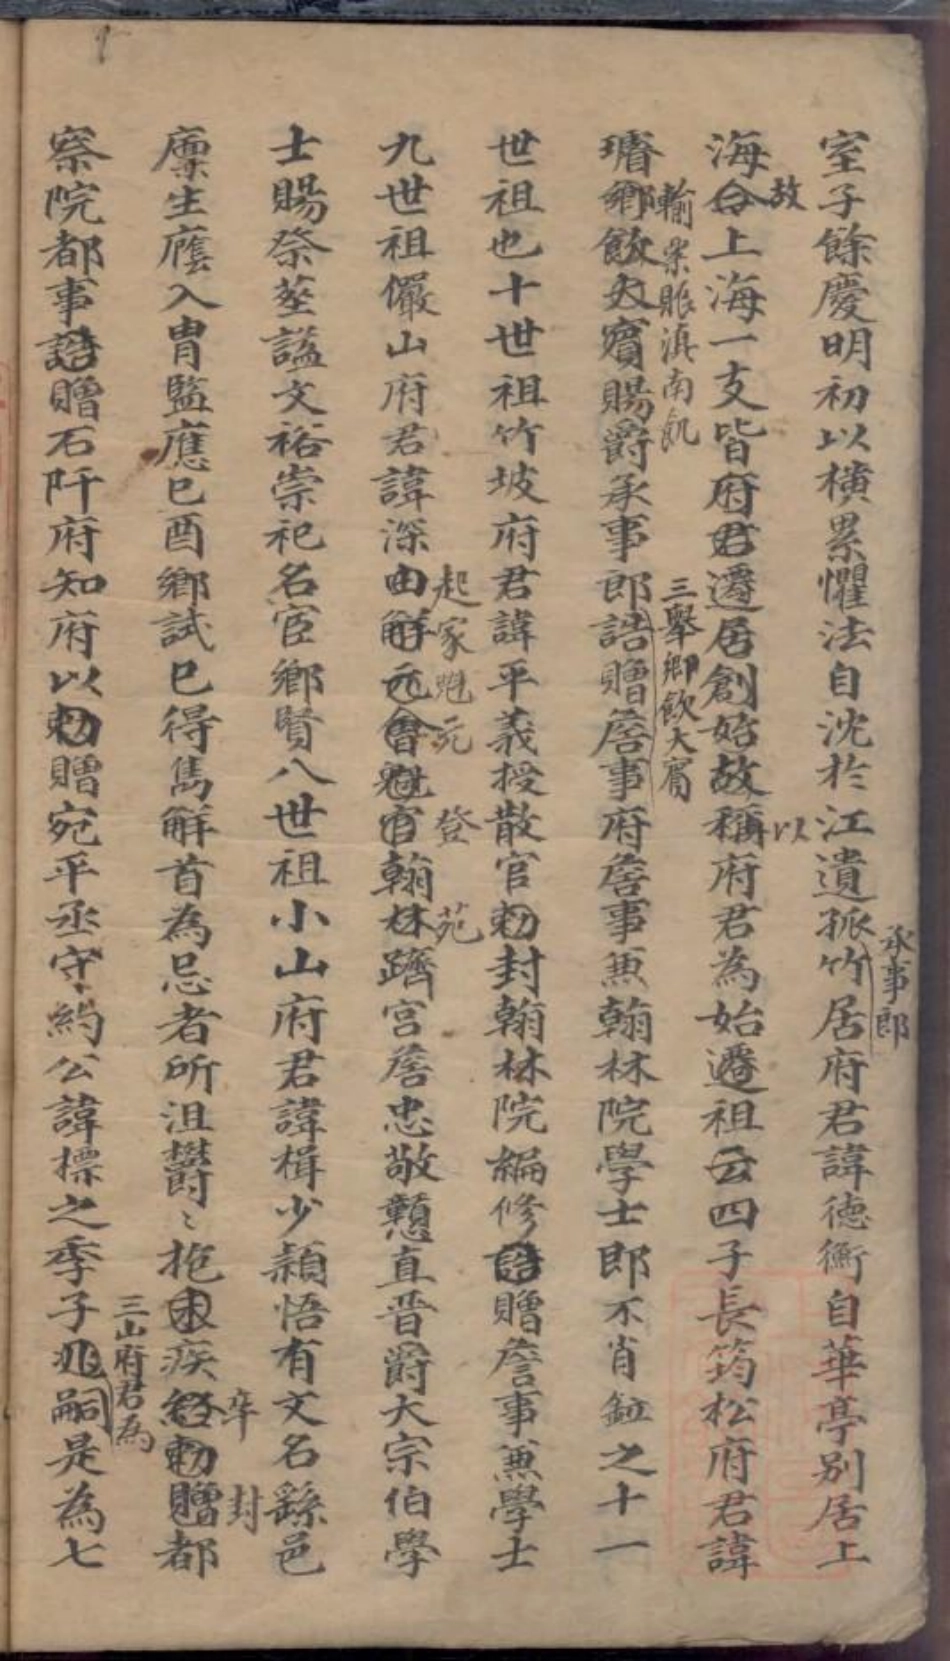 室子餘慶明初以橫累懼法自沈於江遺孤竹居府君諱德衡自華亭別居上
承事郎
海今上海一支皆府君遷居創始故稱府君為始遷祖云四子長筠松府君諱
故
以
璿鄉飲大賓賜爵承事郎誥贈詹事府詹事兼翰林院學士即不肖鉝之十一
輸粟賑滇南飢
三舉鄉飲大賓
世祖也十世祖竹坡府君諱平義授散官勅封翰林院編修誥贈詹事兼學士
九世祖儼山府君諱深由解元會魁官翰林躋宮詹忠敬戇直晋爵大宗伯學
起家魁元
登
苑
士賜祭塋諡文裕崇祀名宦鄉賢八世祖小山府君諱楫少穎悟有文名繇邑
廩生廕入胄監應巳酉鄉試巳得雋解首為忌者所沮欝〻抱困疾終勅贈都
卒
封
察院都事誥贈石阡府知府以勅贈宛平丞守約公諱標之季子承嗣是為七
三山府君為